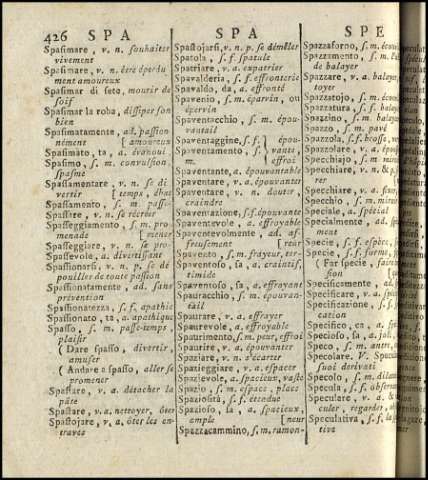 426 SPA SPA SPE
Spasimare, v. n. souhaiter
vivement
Spasimare, v. n. être éperdu
ment amoureux
Spasimar di sete, mourir de
soif
Spasimar la roba, dissiper son
bien
Spasimatamente, ad. passion
nément [ amoureux
Spasimato, ta, a. évanoui
Spasimo, s. m. convulsion,
spasme
Spassamentare, v. n. se di
vertir [ temps, ébat
Spassamento, s. m. passe-
Spassare, v. n. se récréer
Spasseggiamento, s. m. pro-
menade [ mener
Spasseggiare, v. n. se pro-
Spassevole, a. divertissant
Spassionarsi, v. n. p. se dé
pouiller de toute passion
Spassionatamente, ad. sans
prévention
Spassionatezza, s. f. apathie
Spassionato, ta, a. apathique
Spasso, s. m. passe-temps,
plaisir
( Dare spasso, divertir,
amuser
( Andare a spasso, aller se
promener
Spastare, v. a. détacher la
pâte
Spastare, v. a. nettoyer, ôter
Spastojare, v. a. ôter les en-
traves
Spastojarsi, v. n. p. se démêler
Spatola, s. f. spatule
Spatriare, v. a. expatrier
Spavalderia, s. f. effronterie
Spavaldo, da, a. effronté
Spavenio, s. m. éparvin, ou
épervin
Spaventacchio, s. m. épou-
vantail
Spaventaggine, s. f. } épou-
Spaventamento, s. } vante,
m. } effroi
Spaventante, a. épouvantable
Spaventare, v. a. épouvanter
Spaventare, v. n. douter,
craindre
Spaventazione, s. f. épouvante
Spaventevole, a. effroyable
Spaventevolmente, ad. af-
freusement [ reur
Spavento, s. m. frayeur, ter-
Spaventoso, sa, a. craintif,
timide
Spaventoso, sa, a. effrayant
Spauracchio, s. m. épouvan-
tail
Spaurare, v. a. effrayer
Spaurevole, a. effroyable
Spaurimento, s. m. peur, effroi
Spaurire, v. a. épouvanter
Spaziare, v. n. s'écarter
Spazieggiare, v. a. espacer
Spazievole, a. spacieux, vaste
Spazio, s. m. espace, place
Spaziosità, s. f. étendue
Spazioso, sa, a. spacieux,
ample [ neur
Spazzacammino, s. m. ramon-
Spazzaforno, s. m.
Spazzamento, s. m.
de balayer
Spazzare, v. a. balayer,
toyer
Spazzatojo, s. m.
Spazzatura, s. f.
Spazzino, s. m.
Spazzo, s. m. pavé
Spazzola, s. f. brosse,
Spazzolare, v. a.
Specchiajo, s. m.
Specchiare, v. n. &
rer
Specchiare, v. a.
Specchio, s. m.
Speciale, a. spécial
Specialmente, ad.
ment
Specie, s. f. espèce,
Specie, s. f. forme,
( Far specie, faire
sion
Specificamente, ad.
Specificare, v. a.
Specificazione, s. f.
cation
Specifico, ca, a.
Specioso, sa, a.
Speco, s. m. antre,
Specolare. V.
suoi derivati
Specolo, s. m.
Specula, s. f.
Speculare, v. a. &
culer, regarder,
Speculativa, s. f.
tive